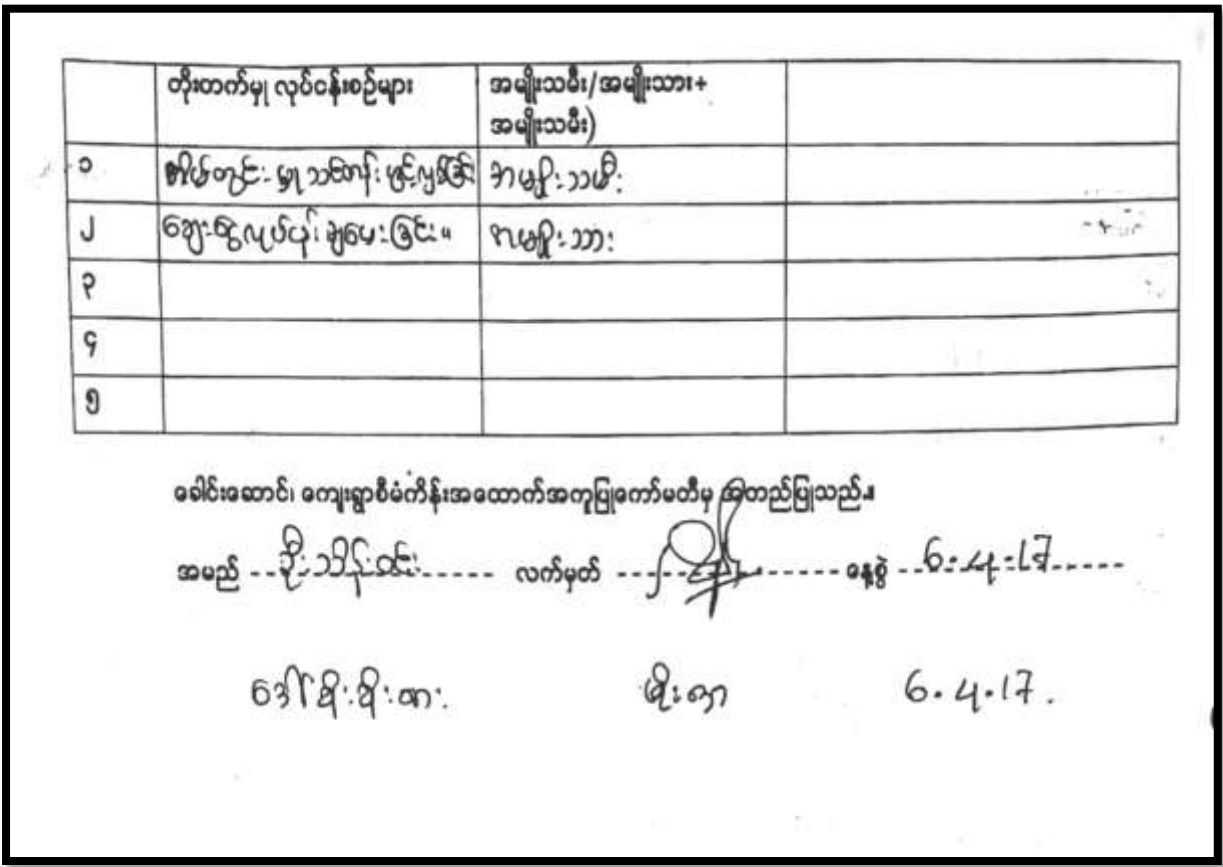 တိုးတက်မှု လုပ်ငန်းစဉ်များ
အမျိုးသမီး/အမျိုးသား+
အမျိုးသမီး)
၁ အိမ်တွင်းမှု သင်တန်း ဖွင့်လှစ်ခြင်း အမျိုးသမီး
၂ ချေးငွေလုပ်ငန်း ချပေးခြင်း။ အမျိုးသား
၃
၄
၅
ခေါင်းဆောင်၊ ကျေးရွာစီမံကိန်းအထောက်အကူပြုကော်မတီမှ အတည်ပြုသည်။
အမည် ဦးသိန်းဝင်း လက်မှတ် နေ့စွဲ 6.4.17
ဒေါ်စိုးစိုး 6.4.17.